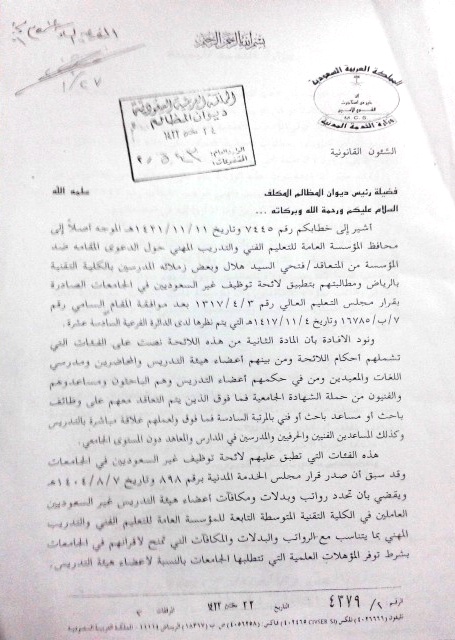 بسم الله الرحمن الرحيم
المملكة العربية السعودية
M.C.S
وزارة الخدمة المدنية
الشئون القانونية
المملكة العربية السعودية
ديوان المظالم
فضيلة رئيس ديوان المظالم المكلف سلمه الله
السلام عليكم ورحمة الله وبركاته ...
أشير إلى خطابكم رقم ٧٤٤٥ وتاريخ ١٤٢١/١١/١١هـ الموجه أصلاً إلى
محافظ المؤسسة العامة للتعليم الفني والتدريب المهني حول الدعوى المقامه ضد
المؤسسة من المتعاقد/فتحي السيد هلال وبعض زملائه المدرسين بالكلية التقنية
بالرياض ومطالبتهم بتطبيق لائحة توظيف غير السعوديين في الجامعات الصادرة
بقرار مجلس التعليم العالي رقم ١٣١٧/٤/٣ بعد موافقة المقام السامي رقم
٧/ب/١٦٧٨٥ وتاريخ ١٤١٧/١١/٤هـ التي يتم نظرها لدى الدائرة الفرعية السادسة عشرة.
ونود الافادة بأن المادة الثانية من هذه اللائحة نصت على الفئات التي
تشملهم أحكام اللائحة ومن بينهم أعضاء هيئة التدريس والمحاضرين ومدرسي
اللغات والمعيدين ومن في حكمهم أعضاء التدريس وهم الباحثون ومساعدوهم
والفنيون من حملة الشهادة الجامعية فما فوق الذين يتم التعاقد معهم على وظائف
باحث أو مساعد باحث أو فني بالمرتبة السادسة فما فوق ولعملهم علاقة مباشرة بالتدريس
وكذلك المساعدين الفنيين والحرفيين والمدرسين في المدارس والمعاهد دون المستوى الجامعي.
هذه الفئات التي تطبق عليهم لائحة توظيف غير السعوديين في الجامعات
وقد سبق أن صدر قرار مجلس الخدمة المدنية برقم ٨٩٨ وتاريخ ١٤٠٤/٨/٧هـ
ويقضي بأن تحدد رواتب وبدلات ومكافآت أعضاء هيئة التدريس غير السعوديين
العاملين في الكلية التقنية المتوسطة التابعة للمؤسسة العامة للتعليم الفني والتدريب
المهني بما يتناسب مع الرواتب والبدلات والمكافآت التي تمنح لاقرانهم في الجامعات
بشرط توفر المؤهلات العلمية التي تتطلبها الجامعات بالنسبة لاعضاء هيئة التدريس.
الرقم ٤٣٧٩ التاريخ ١٤٢٢ المرفقات